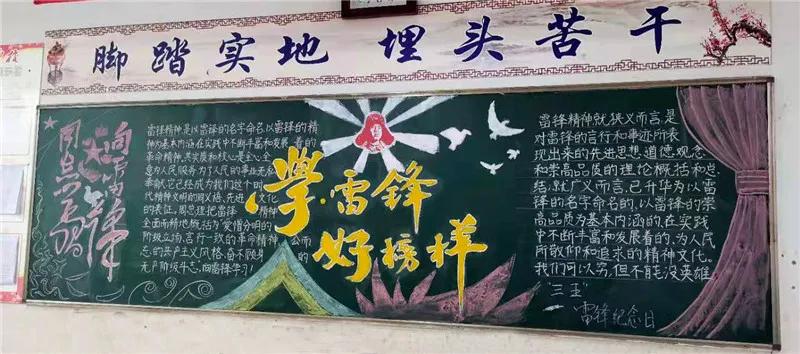 脚踏实地 埋头苦干
向雷锋
同志学习
雷锋精神是以雷锋的名字命名,以雷锋的精
神为基本内涵,在实践中不断丰富和发展着的
革命精神,其实质和核心是全心全
意为人民服务,为了人民的事业无私
奉献,它已经成为我们这个时
代精神文明的同义语、先进文化
的表征。周总理把雷锋精神
全面而精炼概括为"爱憎分明的
阶级立场,言行一致的革命精神,公而
忘的共产主义风格,奋不顾身的
无产阶级斗志,向雷锋学习!
学·雷锋
好榜样
雷锋精神就狭义而言是
对雷锋的言行和事迹所表
现出来的先进思想,道德观念
和崇高品质的理论概括和总
结,就广义而言,已升华为以雷
锋的名字命名的,以雷锋的崇
高品质为基本内涵的,在实践
中不断丰富和发展着的,为人民
所敬仰和追求的精神文化。
我们可以穷,但不能没英雄
"三王"
雷锋纪念日